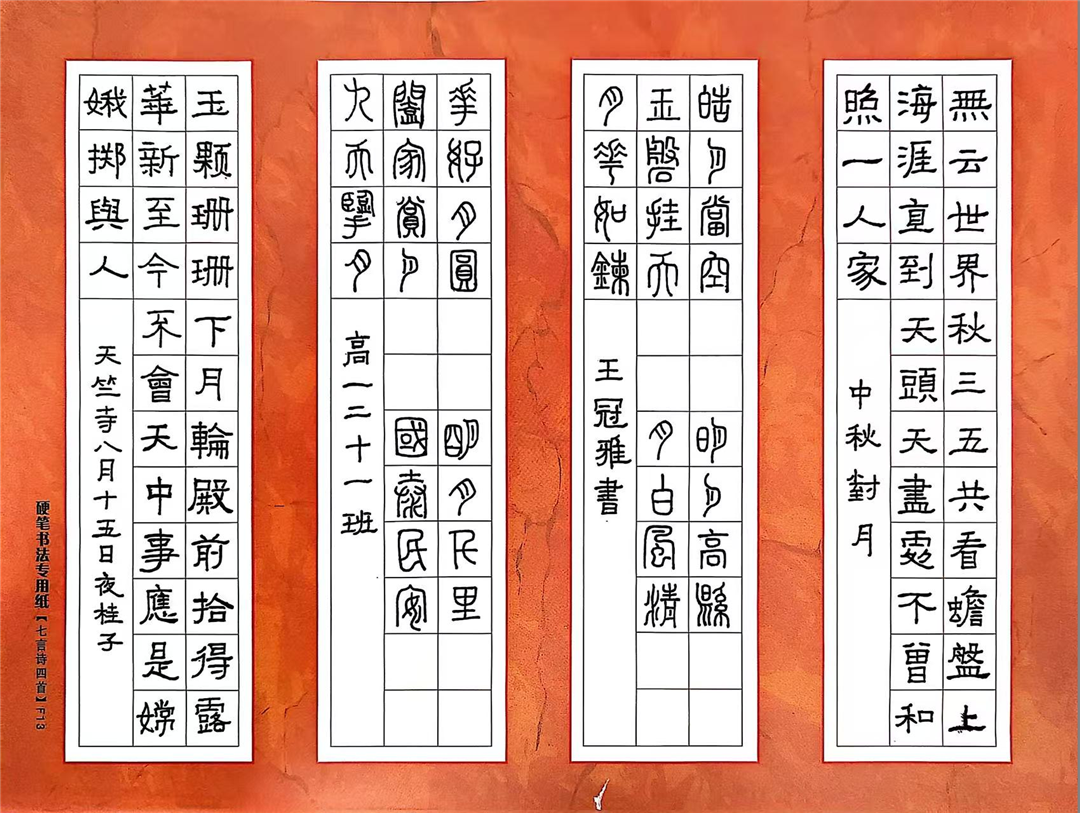 無云世界秋三五共看蟾盤上
海涯直到天頭天盡處不曾和
照一人家
中秋對月
皓月當空 明月高縣
玉磐挂天 月白風清
月華如鍊
王冠雅書
華好月圓 明月千里
闔家賞月 國泰民安
九天擥月
高一二十一班
玉顆珊珊下月輪殿前拾得露
華新至今不會天中事應是嫦
娥掷與人
天竺寺八月十五日夜桂子
硬笔书法专用纸【七言诗四首】F13